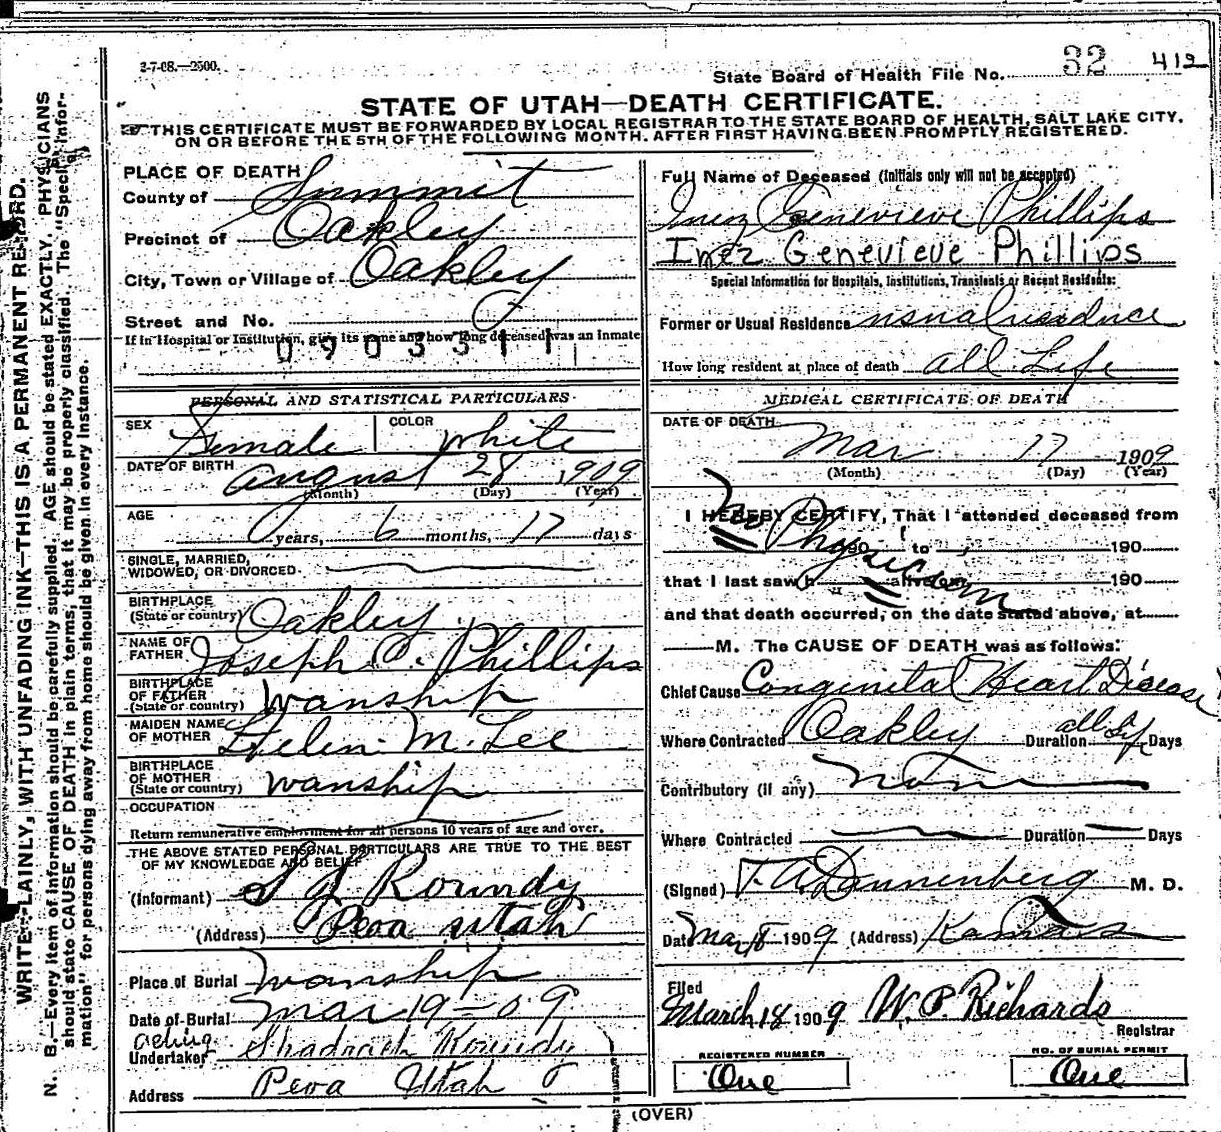 2-7-08.—2500.
State Board of Health File No. 32 412
STATE OF UTAH—DEATH CERTIFICATE.
THIS CERTIFICATE MUST BE FORWARDED BY LOCAL REGISTRAR TO THE STATE BOARD OF HEALTH, SALT LAKE CITY,
ON OR BEFORE THE 5TH OF THE FOLLOWING MONTH. AFTER FIRST HAVING BEEN PROMPTLY REGISTERED.
WRITE PLAINLY, WITH UNFADING INK—THIS IS A PERMANENT RECORD.
N. B.—Every item of information should be carefully supplied. AGE should be stated EXACTLY. PHYSICIANS
should state CAUSE OF DEATH in plain terms, that it may be properly classified. The "Special Infor-
mation" for persons dying away from home should be given in every instance.
PLACE OF DEATH
County of Summit
Precinct of Oakley
City, Town or Village of Oakley
Street and No.
If in Hospital or Institution, give its name and how long deceased was an inmate
0903311
PERSONAL AND STATISTICAL PARTICULARS
SEX Female COLOR White
DATE OF BIRTH August 28 1909
(Month) (Day) (Year)
AGE
0 years, 6 months, 17 days
SINGLE, MARRIED,
WIDOWED, OR DIVORCED
BIRTHPLACE
(State or country) Oakley
NAME OF
FATHER Joseph C. Phillips
BIRTHPLACE
OF FATHER
(State or country) Wanship
MAIDEN NAME
OF MOTHER Helen M. Lee
BIRTHPLACE
OF MOTHER
(State or country) Wanship
OCCUPATION
Return remunerative employment for all persons 10 years of age and over.
THE ABOVE STATED PERSONAL PARTICULARS ARE TRUE TO THE BEST
OF MY KNOWLEDGE AND BELIEF
(Informant) S J Roundy
(Address) Peoa Utah
Place of Burial Wanship
Date of Burial Mar 19-09
Acting
Undertaker Shadrach Roundy
Address Peoa Utah
Full Name of Deceased (Initials only will not be accepted)
Inez Genevieve Phillips
Inez Genevieve Phillips
Special Information for Hospitals, Institutions, Transients or Recent Residents:
Former or Usual Residence usual residence
How long resident at place of death all Life
MEDICAL CERTIFICATE OF DEATH
DATE OF DEATH
Mar 17 1909
(Month) (Day) (Year)
I HEREBY CERTIFY, That I attended deceased from
No Physician
190 to 190
that I last saw h alive on 190
and that death occurred, on the date stated above, at
M. The CAUSE OF DEATH was as follows:
Chief Cause Conginital Heart Disease
Where Contracted Oakley Duration all Life Days
Contributory (if any) None
Where Contracted Duration Days
(Signed) T. A. Dannenberg M. D.
Date Mar 18 1909 (Address) Kamas
Filed
March 18 1909 W. P. Richards
Registrar
REGISTERED NUMBER
One
NO. OF BURIAL PERMIT
One
(OVER)